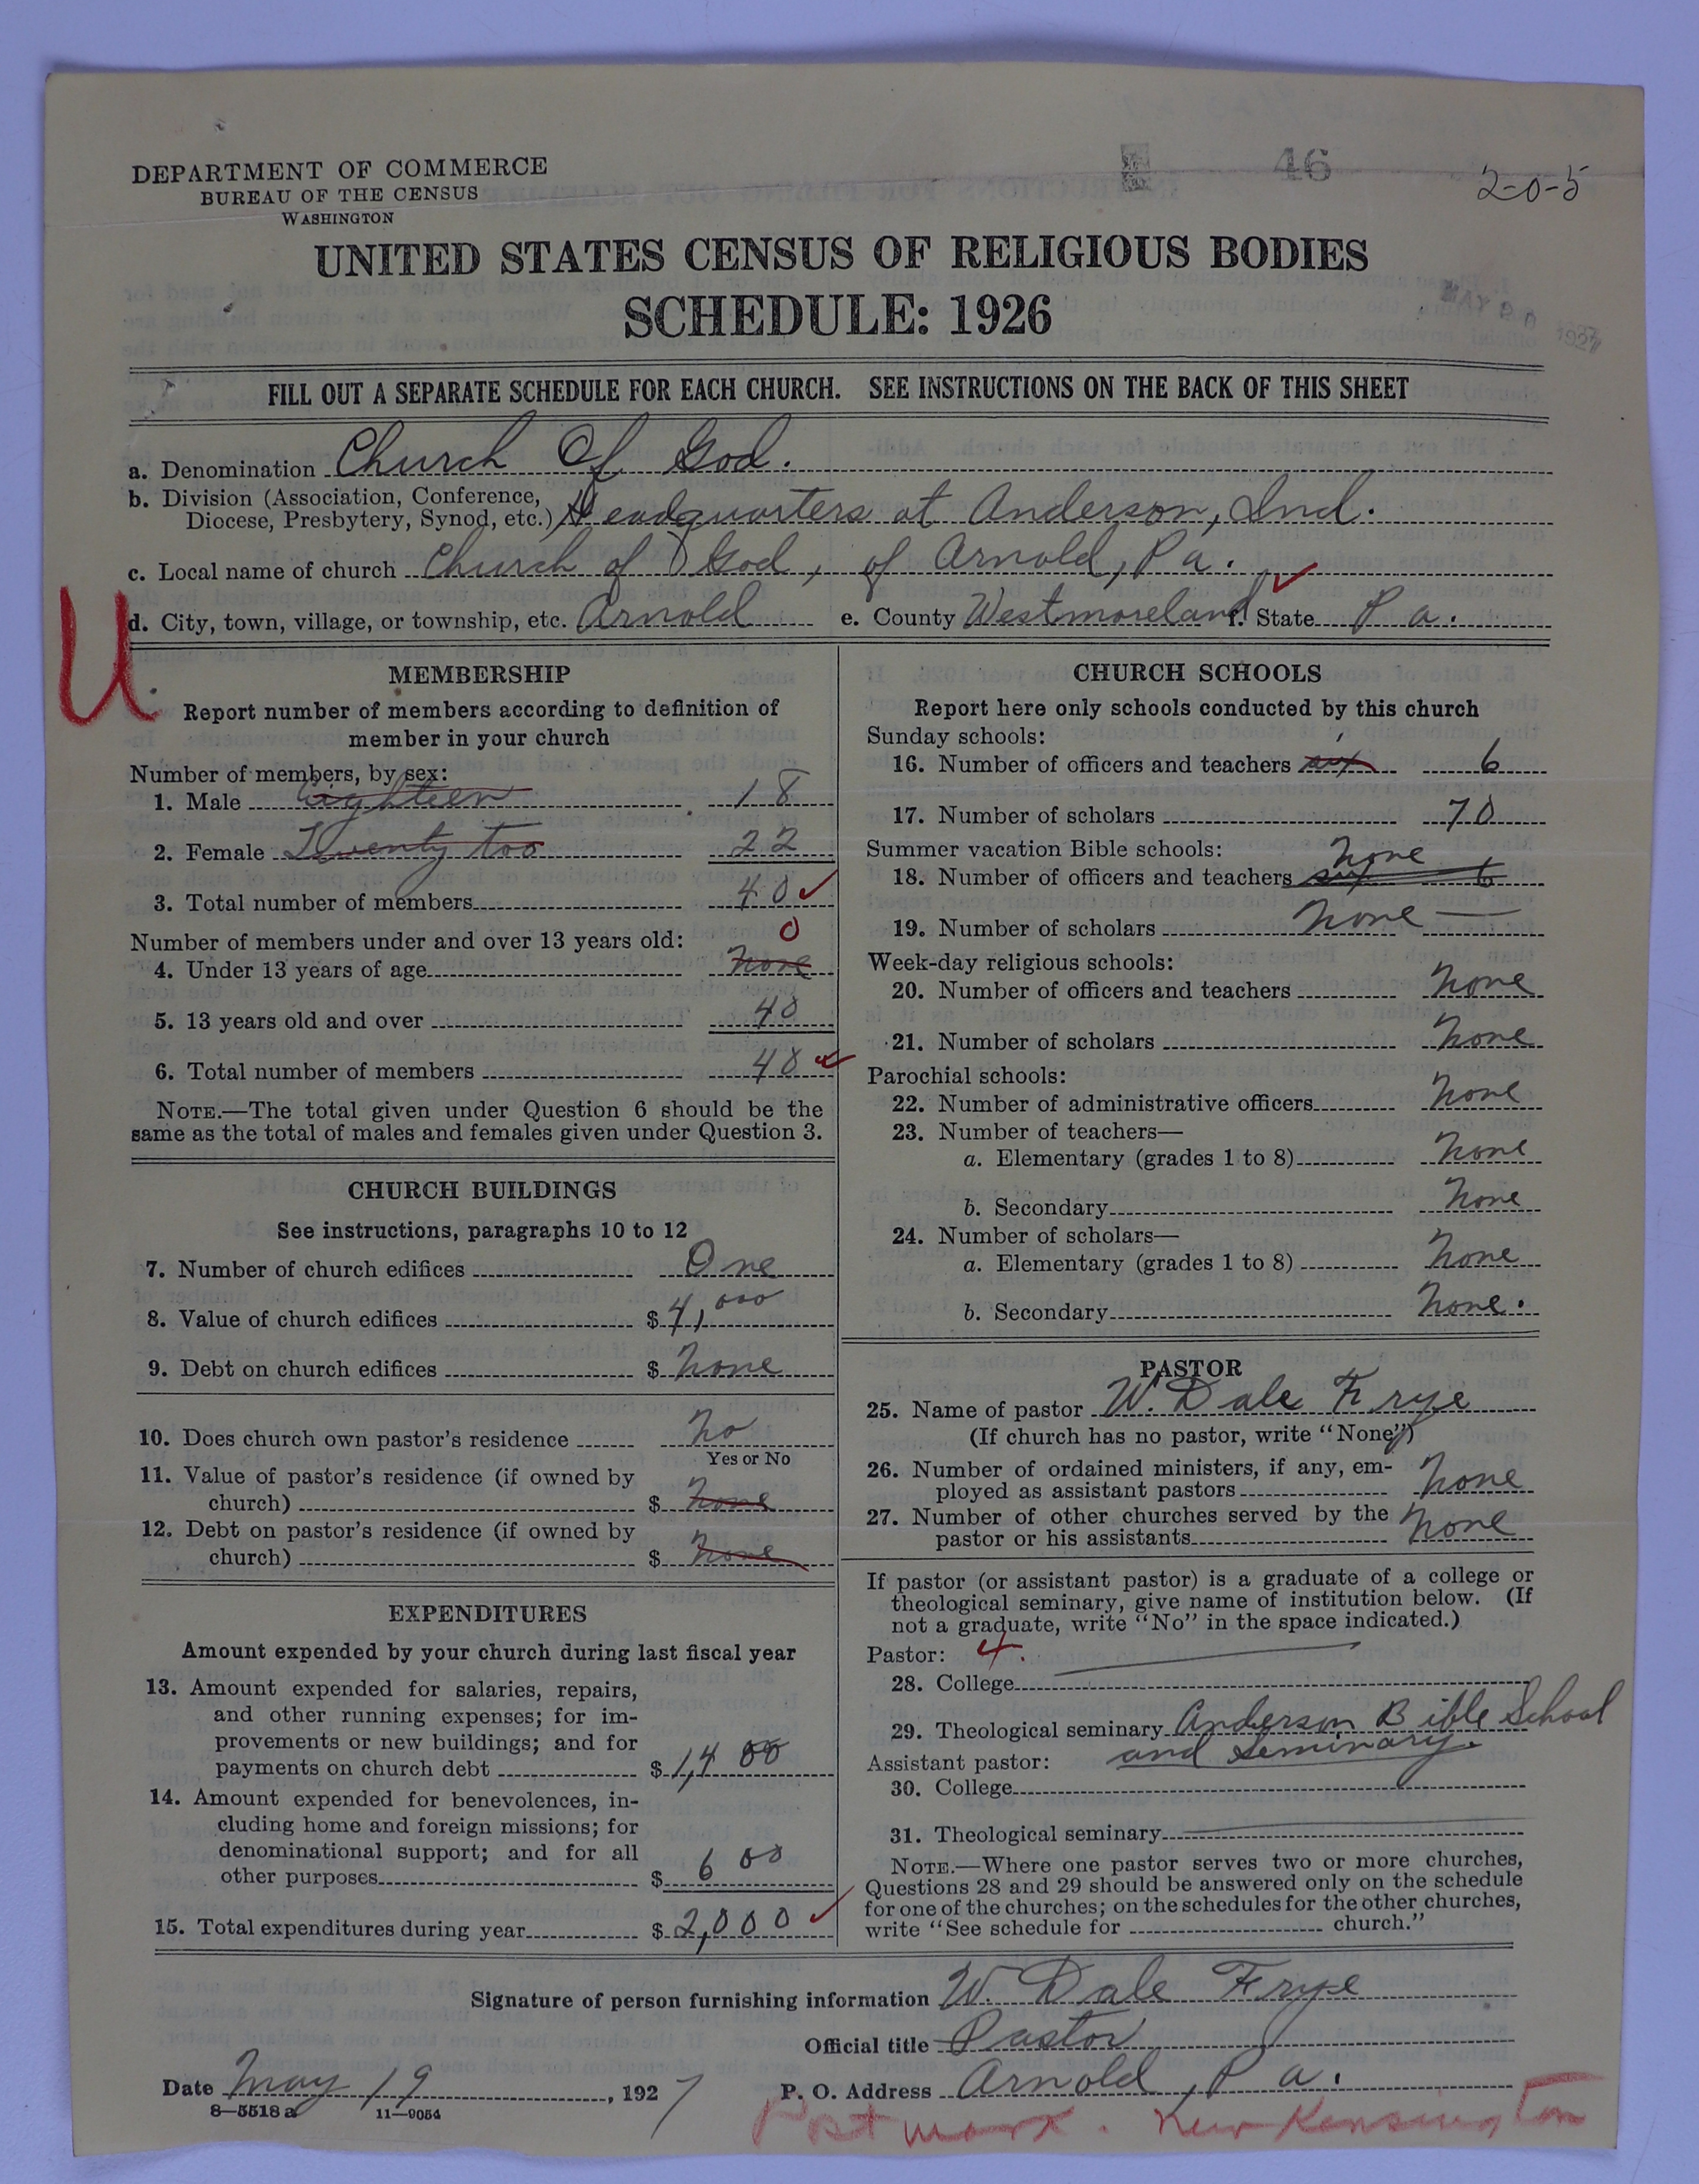 DEPARTMENT OF COMMERCE
BUREAU OF THE CENSUS
WASHINGTON
46
2-0-5
UNITED STATES CENSUS OF RELIGIOUS BODIES
SCHEDULE: 1926
MAY 20 1927
FILL OUT A SEPARATE SCHEDULE FOR EACH CHURCH. SEE INSTRUCTIONS ON THE BACK OF THIS SHEET
a. Denomination Church Of God.
b. Division (Association, Conference,
Diocese, Presbytery, Synod, etc.) Headquarters at Anderson, Ind.
c. Local name of church Church of God, of Arnold, Pa.
U
d. City, town, village, or township, etc. Arnold e. County Westmoreland f. State Pa.
MEMBERSHIP
Report number of members according to definition of
member in your church
Number of members, by sex:
1. Male Eighteen 18
2. Female Twenty too 22
3. Total number of members 40
Number of members under and over 13 years old: 0
4. Under 13 years of age none
5. 13 years old and over 40
6. Total number of members 40
NOTE.—The total given under Question 6 should be the
same as the total of males and females given under Question 3.
CHURCH BUILDINGS
See instructions, paragraphs 10 to 12
7. Number of church edifices One
8. Value of church edifices $ 4,000
9. Debt on church edifices $ None
10. Does church own pastor's residence No
Yes or No
11. Value of pastor's residence (if owned by
church) $ None
12. Debt on pastor's residence (if owned by
church) $ None
EXPENDITURES
Amount expended by your church during last fiscal year
13. Amount expended for salaries, repairs,
and other running expenses; for im-
provements or new buildings; and for
payments on church debt $ 1,400
14. Amount expended for benevolences, in-
cluding home and foreign missions; for
denominational support; and for all
other purposes $ 600
15. Total expenditures during year $ 2,000
CHURCH SCHOOLS
Report here only schools conducted by this church
Sunday schools:
16. Number of officers and teachers six 6
17. Number of scholars 70
Summer vacation Bible schools:
None
18. Number of officers and teachers six 6
19. Number of scholars None
Week-day religious schools:
20. Number of officers and teachers None
21. Number of scholars None
Parochial schools:
22. Number of administrative officers None
23. Number of teachers—
a. Elementary (grades 1 to 8) None
b. Secondary None
24. Number of scholars—
a. Elementary (grades 1 to 8) None
b. Secondary None.
PASTOR
25. Name of pastor W. Dale Frye
(If church has no pastor, write "None")
26. Number of ordained ministers, if any, em-
ployed as assistant pastors None
27. Number of other churches served by the
pastor or his assistants None
If pastor (or assistant pastor) is a graduate of a college or
theological seminary, give name of institution below. (If
not a graduate, write "No" in the space indicated.)
Pastor: 4.
28. College
29. Theological seminary Anderson Bible School
Assistant pastor: and Seminary.
30. College
31. Theological seminary
NOTE.—Where one pastor serves two or more churches,
Questions 28 and 29 should be answered only on the schedule
for one of the churches; on the schedules for the other churches,
write "See schedule for church."
Signature of person furnishing information W. Dale Frye
Official title Pastor
Date May 19, 1927 P. O. Address Arnold, Pa.
8—5518 a 11—9054
Postmark. New Kensington